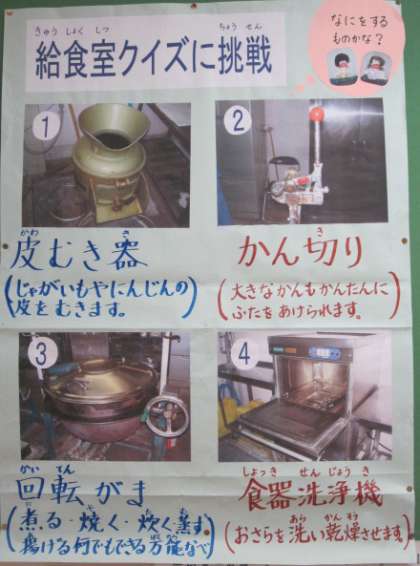 きゅう しょく しつ ちょう せん
給食室クイズに挑戦
なにをする
ものかな?
1
2
かわ き
皮むき器
(じゃがいもやにんじんの
皮をむきます。)
き
かん切り
(大きなかんもかんたんに
ふたをあけられます。)
3
4
かい てん
回転がま
(煮る・焼く・炊く蒸す
揚げる何でもできる万能なべ)
しょっき せん じょう き
食器洗浄機
あら かん そう
(おさらを洗い乾燥させます。)